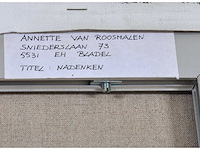 ANNETTE VAN ROOSMALEN
SNIEDERSLAAN 73
5531 EH BLADEL
TITEL: NADENKEN